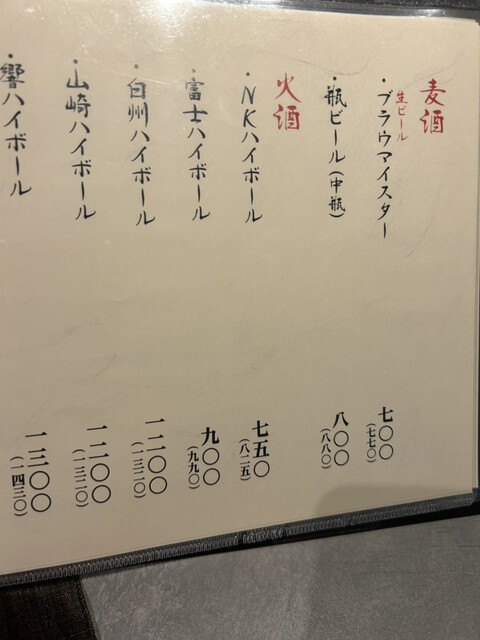 麦酒
生ビール
・ブラウマイスター
七〇〇
（七七〇）
・瓶ビール（中瓶）
八〇〇
（八八〇）
火酒
・NKハイボール
七五〇
（八二五）
・富士ハイボール
九〇〇
（九九〇）
・白州ハイボール
一二〇〇
（一三二〇）
・山崎ハイボール
一二〇〇
（一三二〇）
・響ハイボール
一三〇〇
（一四三〇）